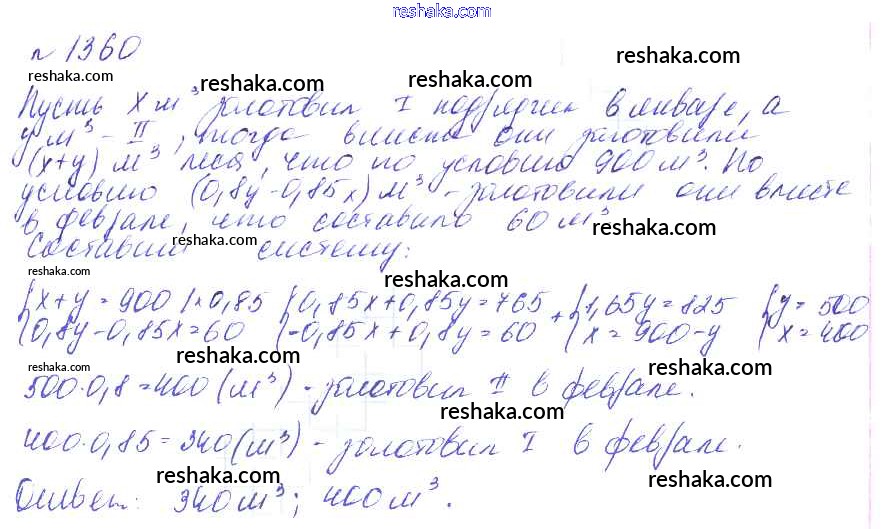 reshaka.com
n 1360
reshaka.com
reshaka.com
reshaka.com
reshaka.com
Пусть x м³ заготовил I подрядчик в январе, а
y м³ - II, тогда вместе они заготовили
reshaka.com
reshaka.com
reshaka.com
(x+y) м³ леса, что по условию 900 м³. По
условию (0,8y-0,85x) м³ - заготовили они вместе
в феврале, что составило 60 м³
reshaka.com
reshaka.com
Составим систему:
reshaka.com
reshaka.com
{x+y=900 |×0,85 {0,85x+0,85y=765 + {1,65y=825 {y=500
{0,8y-0,85x=60 {-0,85x+0,8y=60 {x=900-y {x=400
reshaka.com
reshaka.com
reshaka.com
500·0,8=400 (м³) - заготовил II в феврале.
reshaka.com
400·0,85=340 (м³) - заготовил I в феврале.
reshaka.com
reshaka.com
Ответ: 340 м³; 400 м³.
reshaka.com